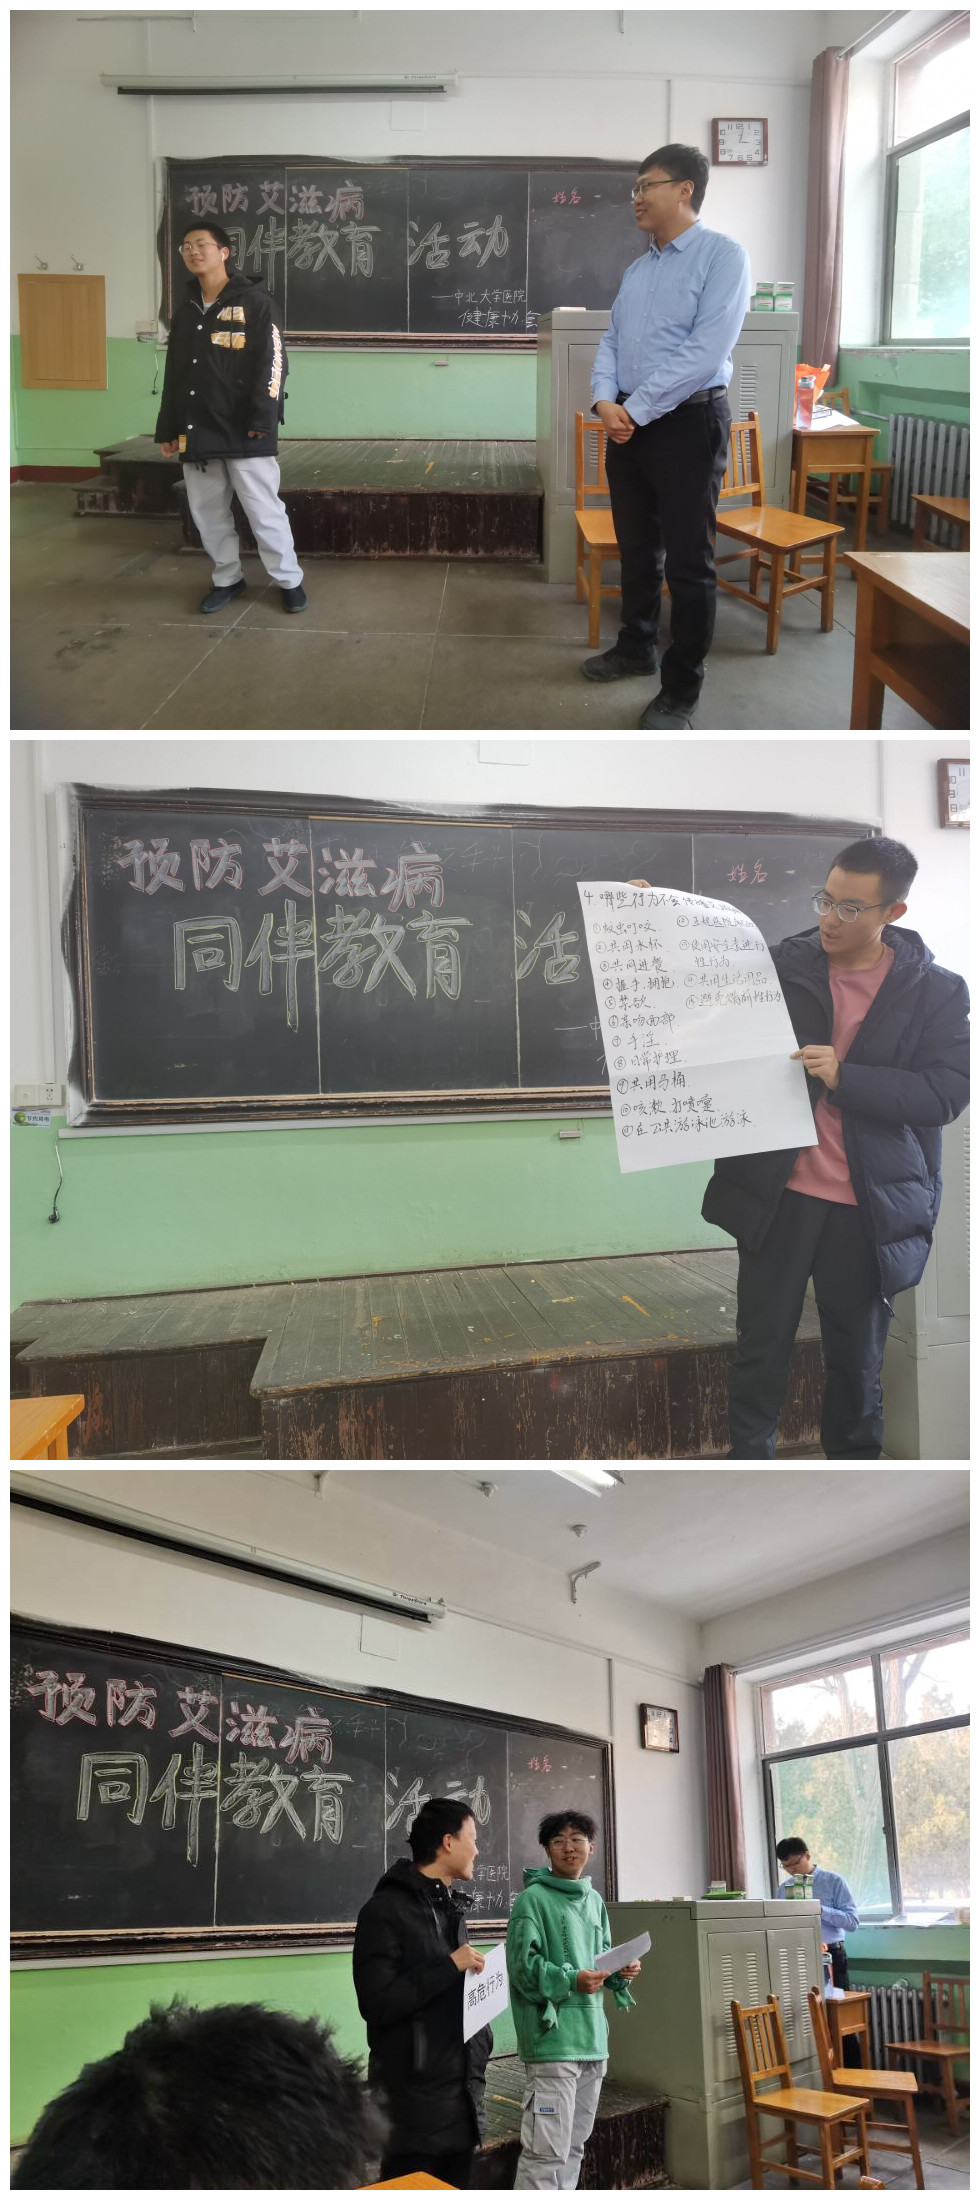 预防艾滋病
同伴教育 活动
姓名
——中北大学医院
健康协会
预防艾滋病
同伴教育 活
姓名
4 哪些行为不会
①蚊虫叮咬.
②共用水杯
③共同进餐
④握手、拥抱.
⑤禁欲
⑥亲吻面部.
⑦手淫.
⑧日常护理.
⑨共用马桶.
⑩咳漱、打喷嚏.
⑪在公共游泳池游泳.
⑬使用安全套进行
性行为.
⑭共用生活用品.
⑮避免婚前性行为
预防艾滋病
同伴教育 活动
姓名
学医院
健康协会
高危行为